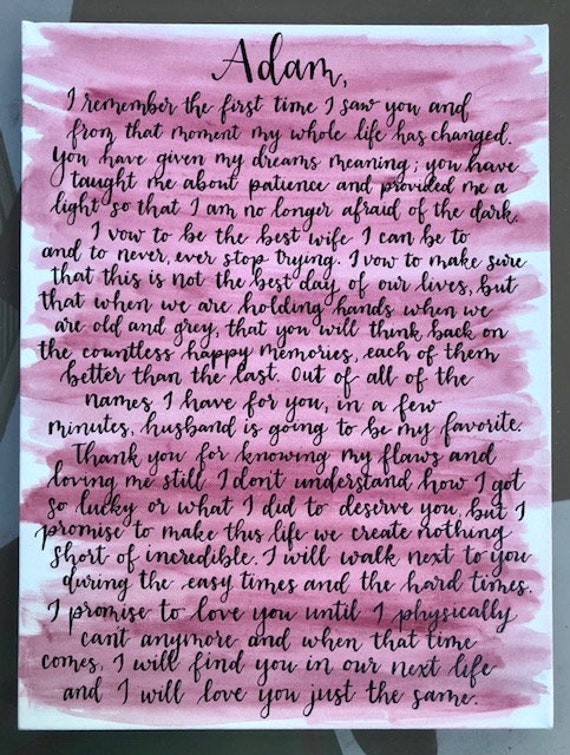 Adam,
I remember the first time I saw you and
from that moment my whole life has changed.
You have given my dreams meaning; you have
taught me about patience and provided me a
light so that I am no longer afraid of the dark.
I vow to be the best wife I can be to
and to never, ever stop trying. I vow to make sure
that this is not the best day of our lives, but
that when we are holding hands when we
are old and grey, that you will think back on
the countless happy memories, each of them
better than the last. Out of all of the
names I have for you, in a few
minutes, husband is going to be my favorite.
Thank you for knowing my flaws and
loving me still I don't understand how I got
so lucky or what I did to deserve you, but I
promise to make this life we create nothing
short of incredible. I will walk next to you
during the easy times and the hard times.
I promise to love you until I physically
can't anymore and when that time
comes, I will find you in our next life
and I will love you just the same.